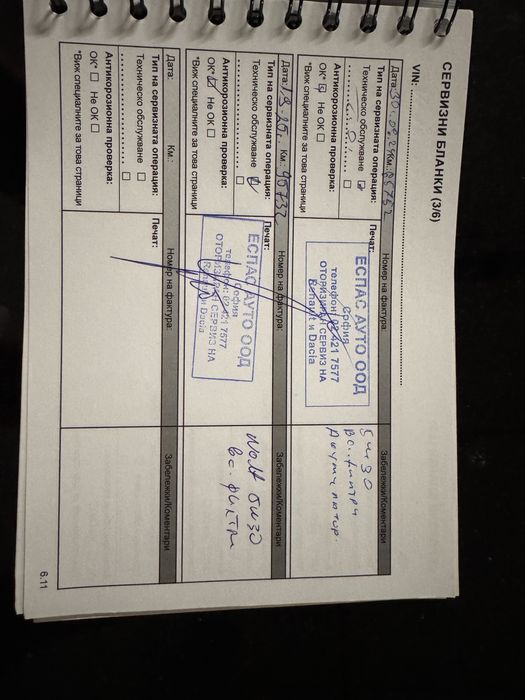 СЕРВИЗНИ БЛАНКИ (3/6)
VIN:
Дата: Км.: Номер на фактура: Забележки/Коментари
Тип на сервизната операция: Печат:
Техническо обслужване
Антикорозионна проверка:
ОК* Не ОК
*Виж специалните за това страници
ЕСПАС АУТО ООД
София
телефон: 02 421 7577
ОТОРИЗИРАН СЕРВИЗ НА
Renault и Dacia
5w30
вс. филтри
Акумулатор.
Дата: Км. 90732 Номер на фактура: Забележки/Коментари
Тип на сервизната операция: Печат:
Техническо обслужване
Антикорозионна проверка:
ОК* Не ОК
*Виж специалните за това страници
ЕСПАС АУТО ООД
София
телефон: 02 421 7577
ОТОРИЗИРАН СЕРВИЗ НА
Renault и Dacia
вс. филтри
Дата: Км.: Номер на фактура: Забележки/Коментари
Тип на сервизната операция: Печат:
Техническо обслужване
Антикорозионна проверка:
ОК* Не ОК
*Виж специалните за това страници
6.11